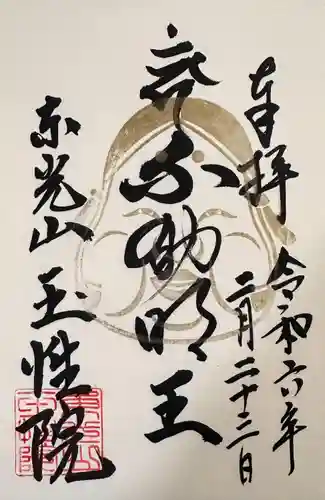 奉拝
令和六年
二月二十三日
不動明王
東光山
玉性院